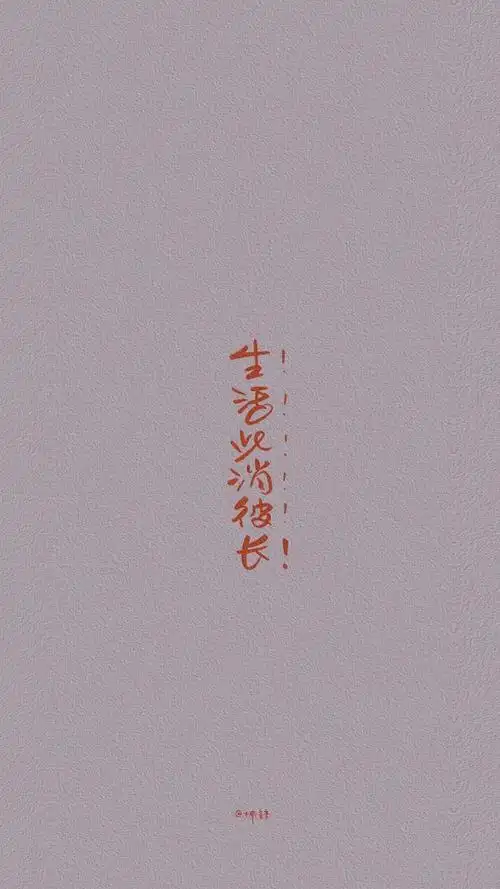 生活此消彼长
! ! ! ! ! !